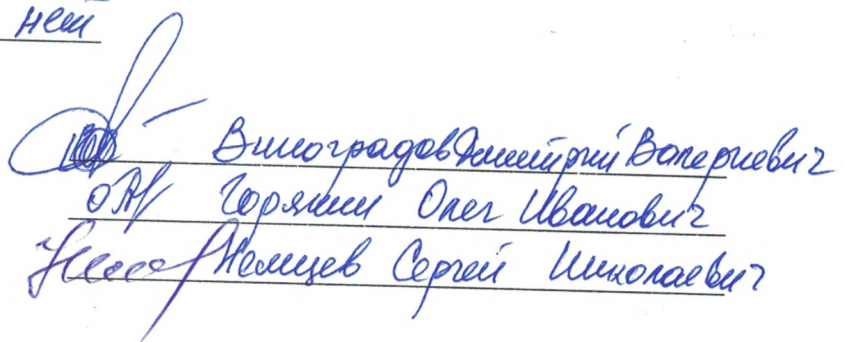 нет
Виноградов Дмитрий Валериевич
Горянин Олег Иванович
Немцев Сергей Николаевич